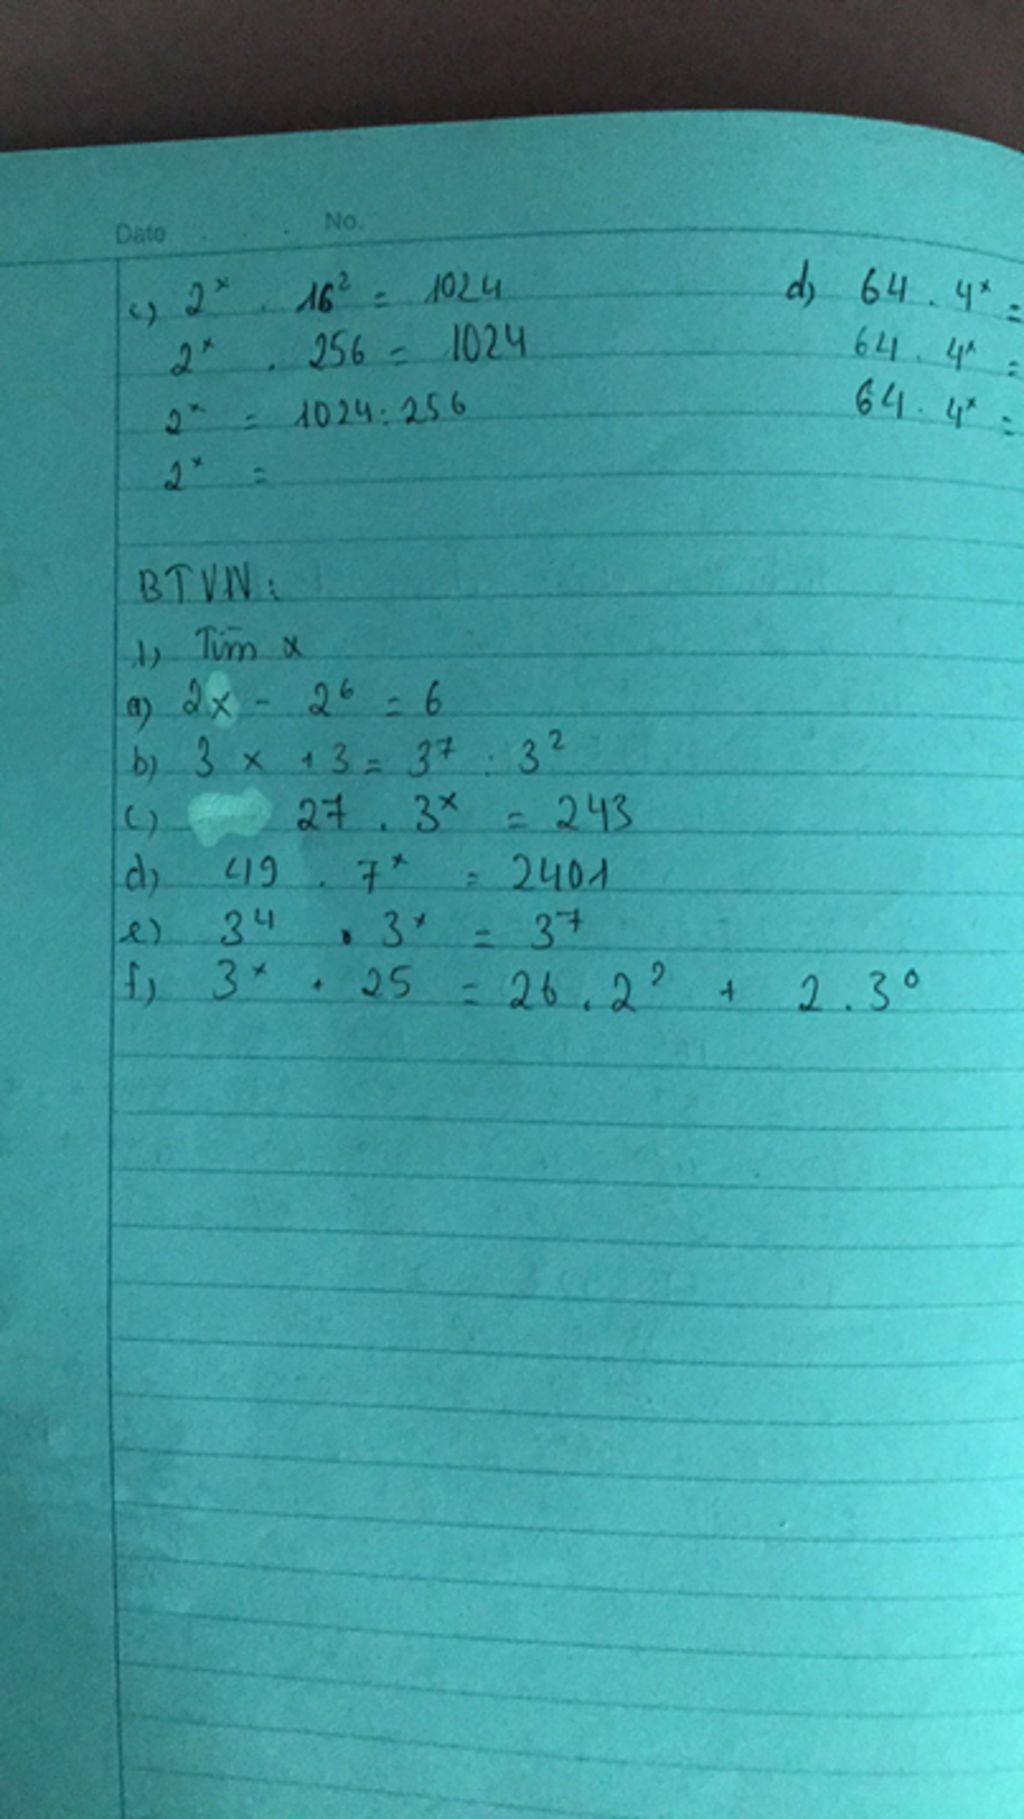 Date No.
c) 2ˣ . 16² = 1024
2ˣ . 256 = 1024
2ˣ = 1024 : 256
2ˣ =
d) 64 . 4ˣ =
64 . 4ˣ =
64 . 4ˣ =
BTVN:
1) Tìm x
a) 2x - 2⁶ = 6
b) 3x + 3 = 3⁷ : 3²
c) 27 . 3ˣ = 243
d) 49 . 7ˣ = 2401
e) 3⁴ . 3ˣ = 3⁷
f) 3ˣ + 25 = 26 . 2² + 2 . 3⁰